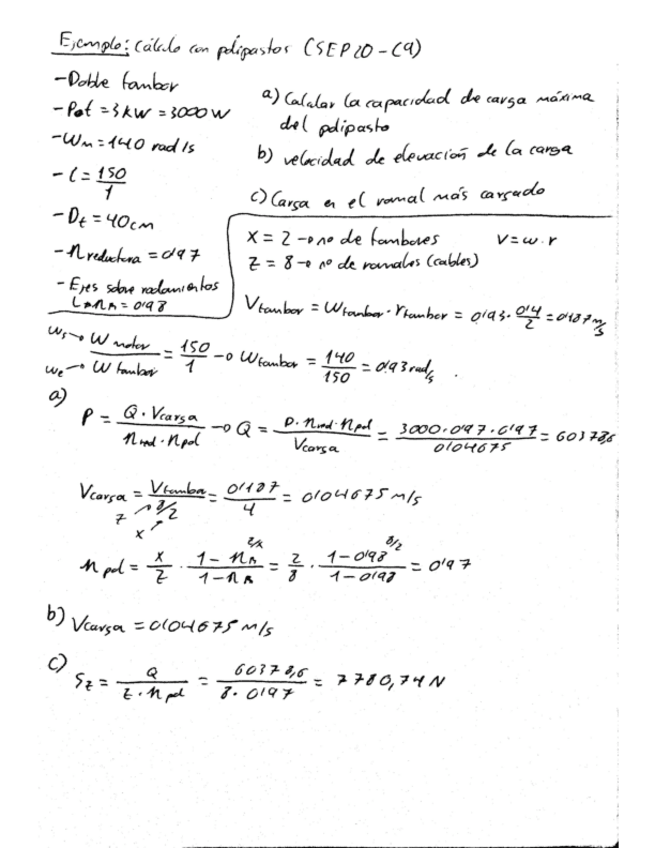 Ejemplo: Cálculo con polipastos (SEP20-C9)
-Doble tambor
-Pot = 3 kW = 3000 W
-Wm = 140 rad/s
- i = 150/1
- Dt = 40 cm
- η reductora = 0'97
- Ejes sobre rodamientos
ηR = 0'98
a) Calcular la capacidad de carga máxima
del polipasto
b) velocidad de elevación de la carga
c) Carga en el ramal más cargado
X = 2 → nº de tambores V = w.r
Z = 8 → nº de ramales (cables)
Vtambor = Wtambor · rtambor = 0'93 · 0'4/2 = 0'187 m/s
Ws → W motor / We → W tambor = 150/1 → Wtambor = 140/150 = 0'93 rad/s .
a)
P = Q · Vcarga / ηred · ηpol → Q = P · ηred · ηpol / Vcarga = 3000 · 0'97 · 0'97 / 0'04675 = 60378,6
Vcarga = Vtambor / 8/2 = 0'187 / 4 = 0'04675 m/s
z x
η pol = x/z · 1 - ηR^z/x / 1 - ηR = 2/8 · 1 - 0'98^8/2 / 1 - 0'98 = 0'97
b) Vcarga = 0'04675 m/s
c) Sz = Q / z · η pol = 60378,6 / 8 · 0'97 = 7780,74 N